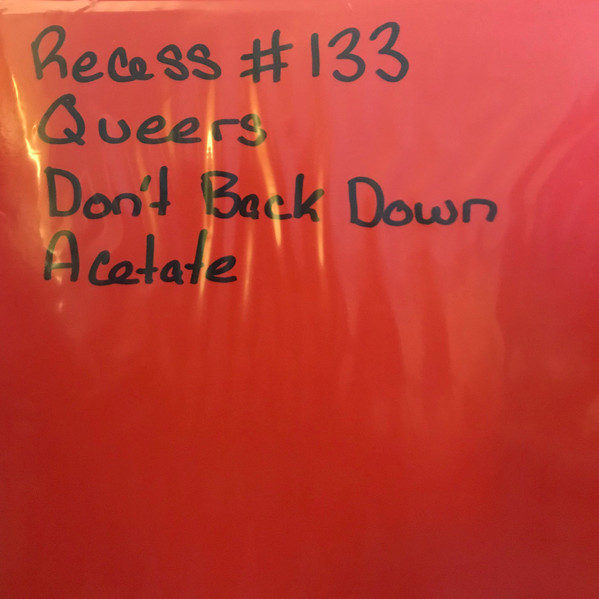 Recess #133
Queers
Don't Back Down
Acetate